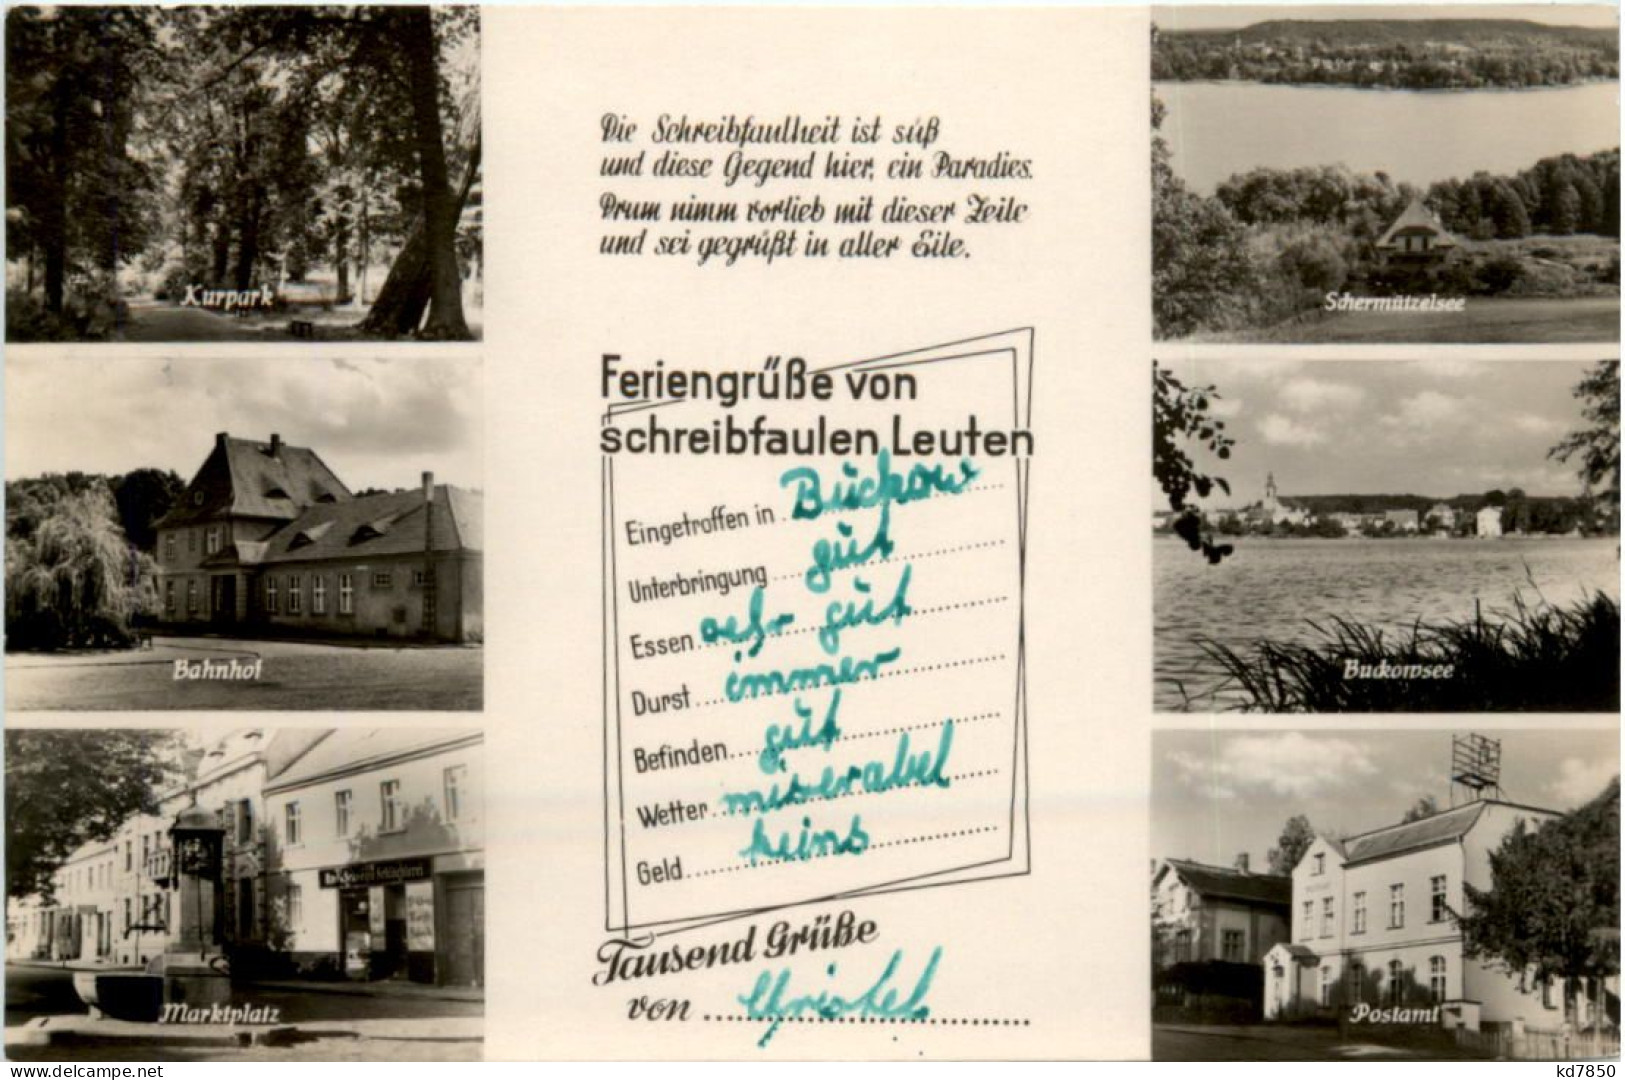 Kurpark
Bahnhof
Marktplatz
Die Schreibfaulheit ist süß
und diese Gegend hier, ein Paradies.
Drum nimm vorlieb mit dieser Zeile
und sei gegrüßt in aller Eile.
Feriengrüße von
schreibfaulen Leuten
Eingetroffen in Buckow
Unterbringung gut
Essen sehr gut
Durst immer
Befinden gut
Wetter miserabel
Geld keins
Tausend Grüße
von Christel
Schermützelsee
Buckowsee
Postamt
kd7850